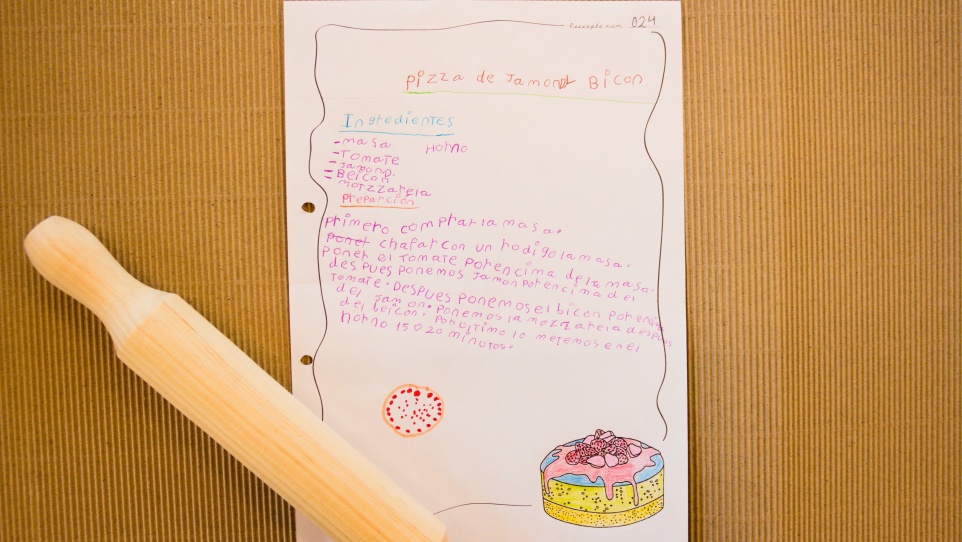 024
pizza de Jamon y Bicon
Ingredientes
-masa Horno
-Tomate
-Jamono.
-Beicon
mozzareia
preparción
primero comprar la masa.
poner chafar con un rodigo la masa.
poner el Tomate por encima de la masa.
despues ponemos Jamon por encima del
Tomate. Despues ponemos el bicon por encima
del Jamon. ponemos la mozzareia despues
del beicon. por ultimo lo metemos en el
horno 15 o 20 minutos.